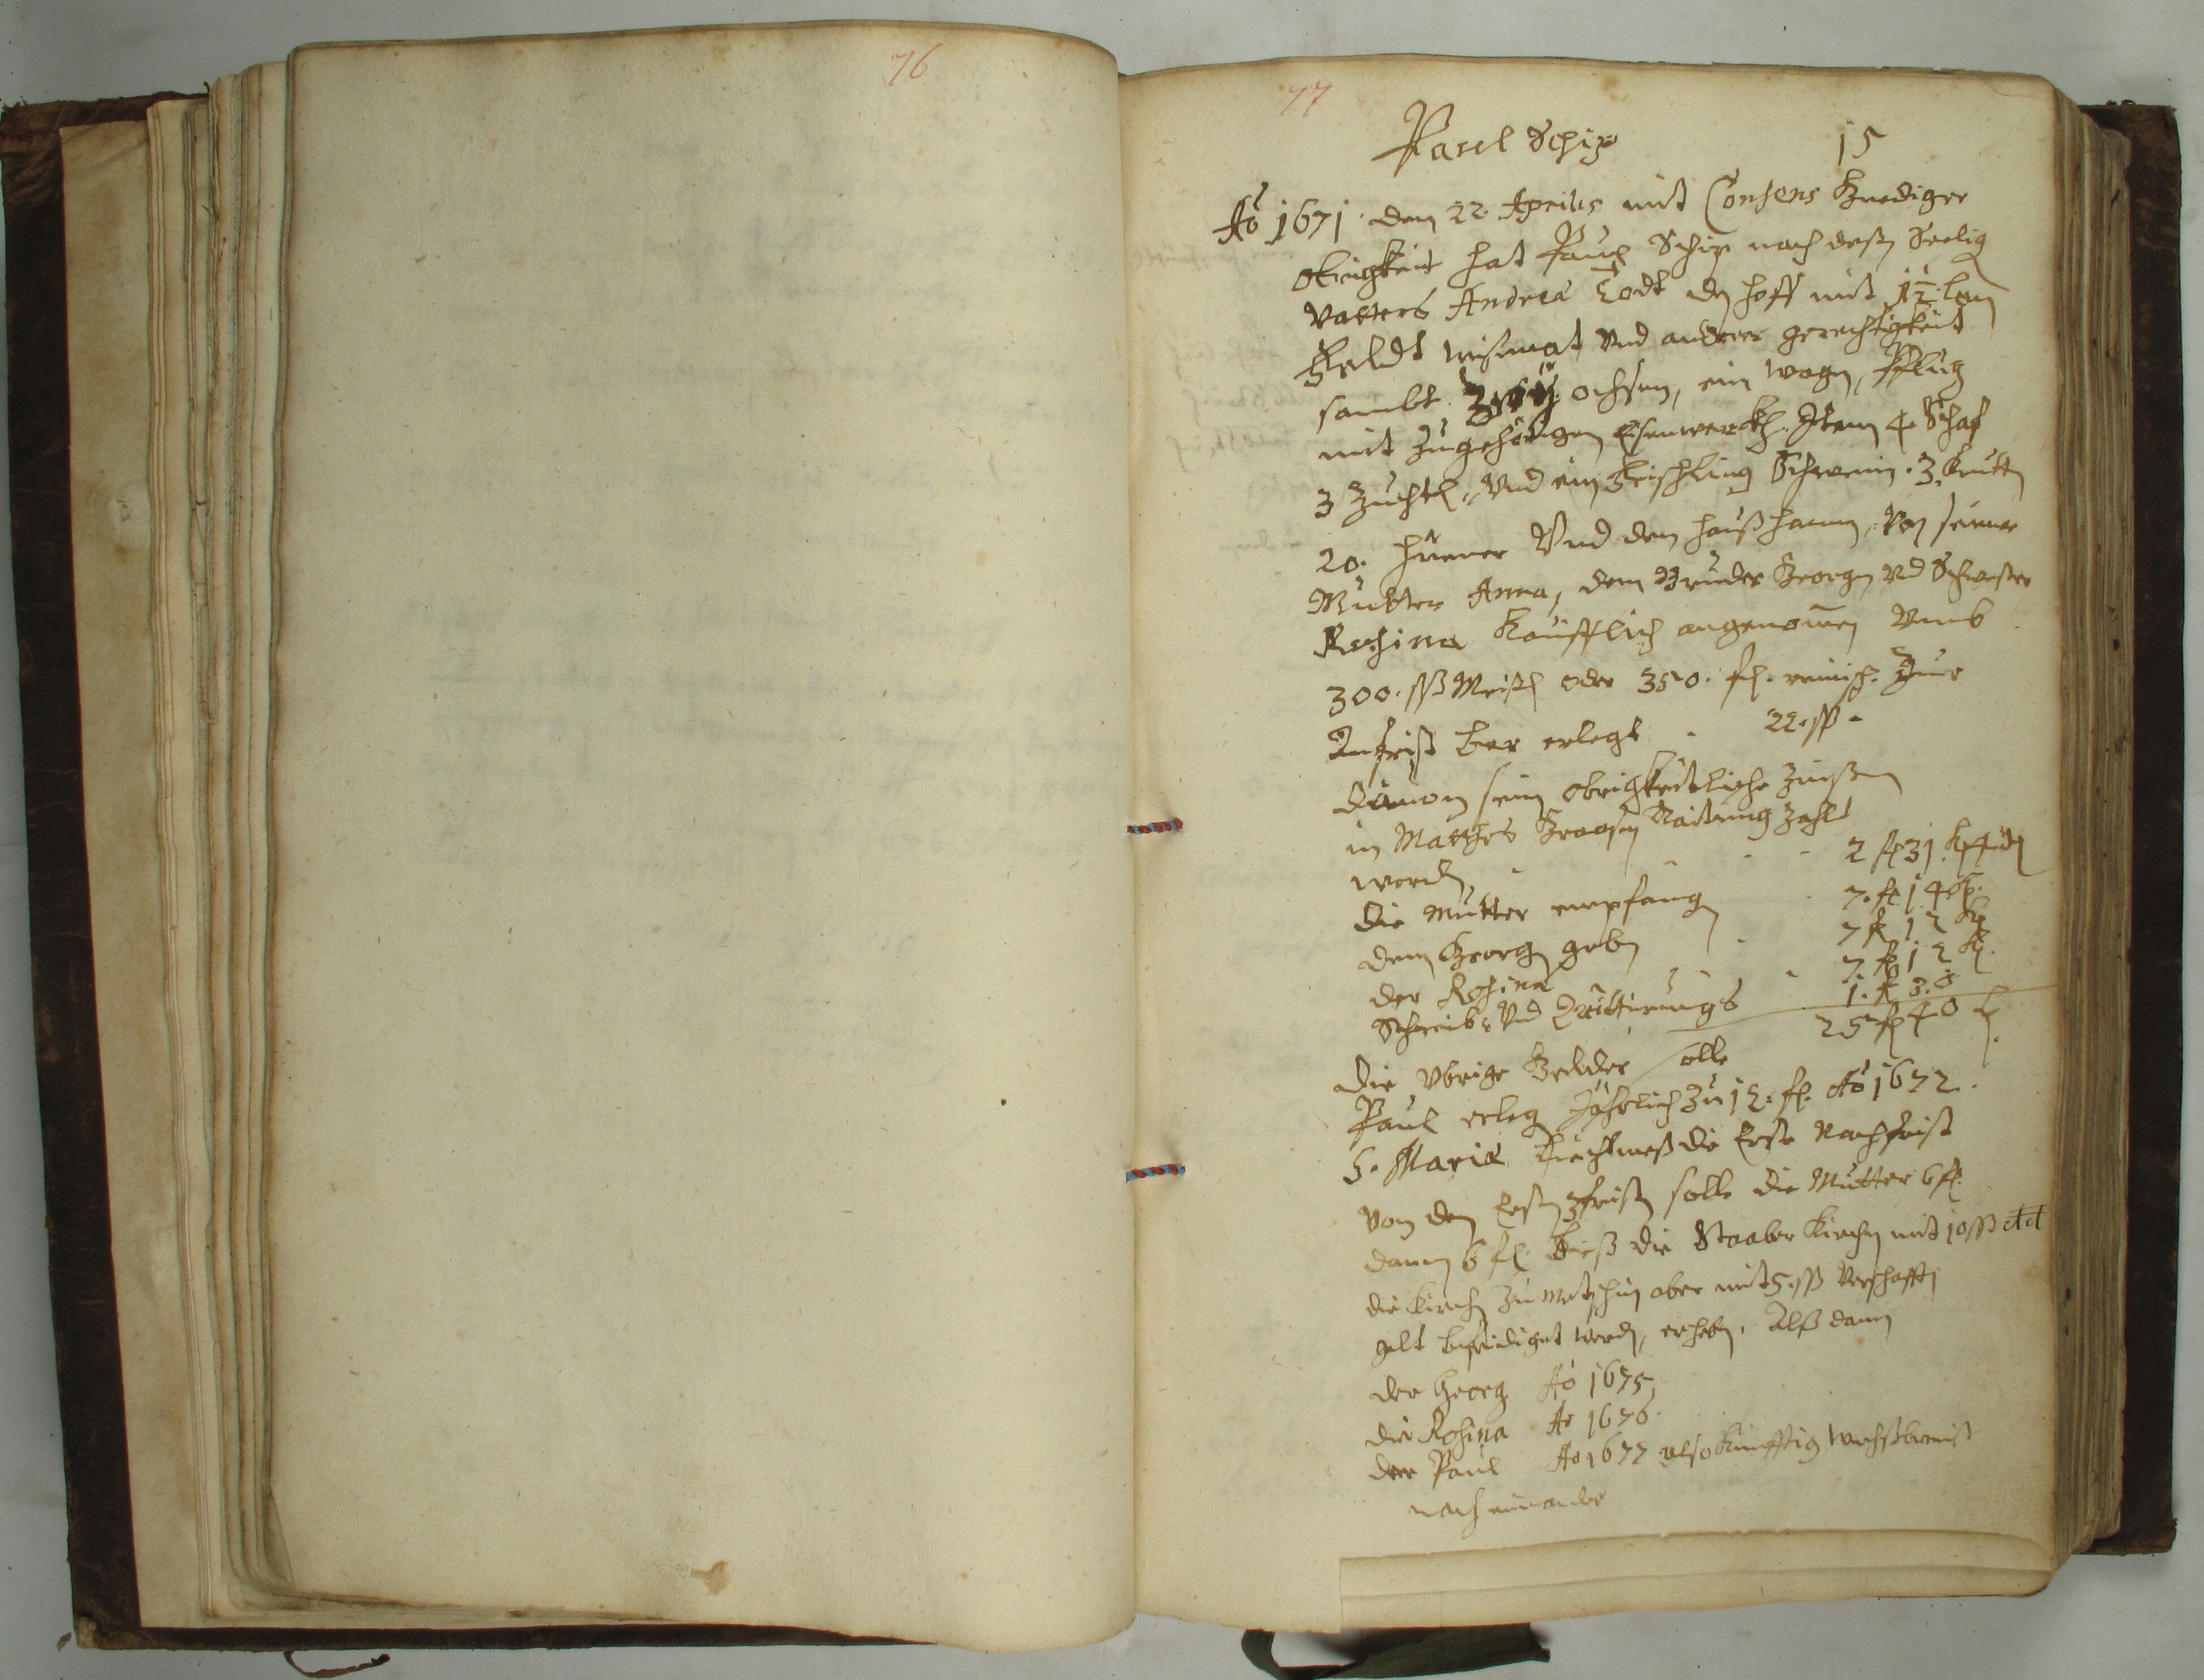 76
77
Paul Schip 15
Ao 1671. den 22. Aprilis mit Consens Gnediger
obrigkeit hat Paul Schip nach deß Seelig
Vatters Andreä Todt den hoff mit 1½ Lan
Feldt wißmat Vnd anderer gerechtigkeit
sambt Zwey ochsen, ein wagn, Pflug
mit Zugehörigen Eisenwerkh. Item 4. Schaf
3 Zuchtl, Vnd ein Frischling Schwein. 3
20. Hüener Vnd den haußhann, Von seiner
Mutter Anna, dem Bruder Georgen Vnd Schwester
Rosina Kaufflich angenomen Vmb
300. ßß Meißl oder 350. fl. reinisch. Zur
Anfrist bar erlegt . 22. ßß .
Dauon sein obrigkeitliche Zinßen
in Matthes Raittung Zahlt
worden . . . 2 fl 31 4
Die Mutter empfang . 7. fl 14 kr.
dem Georgen geben . 7 fl 12 kr
der Rosina . 7. fl 12 kr.
Schreib: Vnd Quittirungs 1. fl 3.
25 fl 40
Die Vbrige Gelder solle
Paul erlegen Jährlich Zu 12. fl. Ao 1672.
S. Mariä Liechtmeß die Erste Nachfrist
Von den Ersten frist solle die Mutter 6 fl.
dann 6 fl. biß die Staaber Kirchen mit 10 ßß
die Kirch Zu aber mit 5. ßß Verschafft
gelt befridiget werden, erheben. Alß dann
der Georg Ao 1675
die Rosina Ao 1676.
der Paul Ao 1677 also Künfftig
nach einander